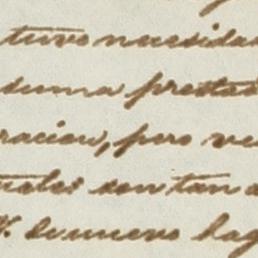 tuvo necesidad
suma prestad
racion, pero ve
tuales son tan a
V. de nuevo hag